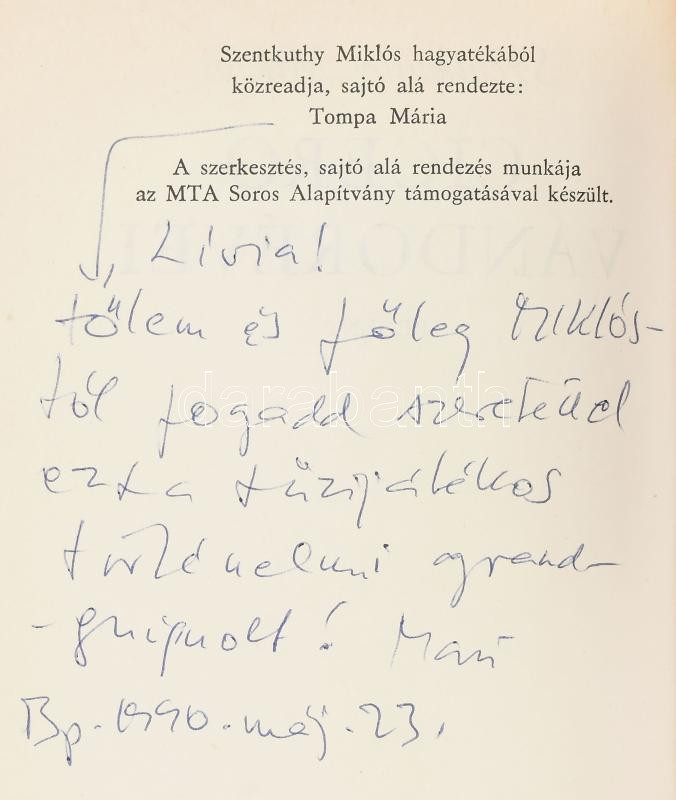 Szentkuthy Miklós hagyatékából
közreadja, sajtó alá rendezte:
Tompa Mária
A szerkesztés, sajtó alá rendezés munkája
az MTA Soros Alapítvány támogatásával készült.
Lívia!
tőlem és főleg Miklós-
tól fogadd szeretettel
ezt a tűzijátékos
történelmi grand-
-guignolt! Mari
Bp. 1990. máj. 23.
darabanth